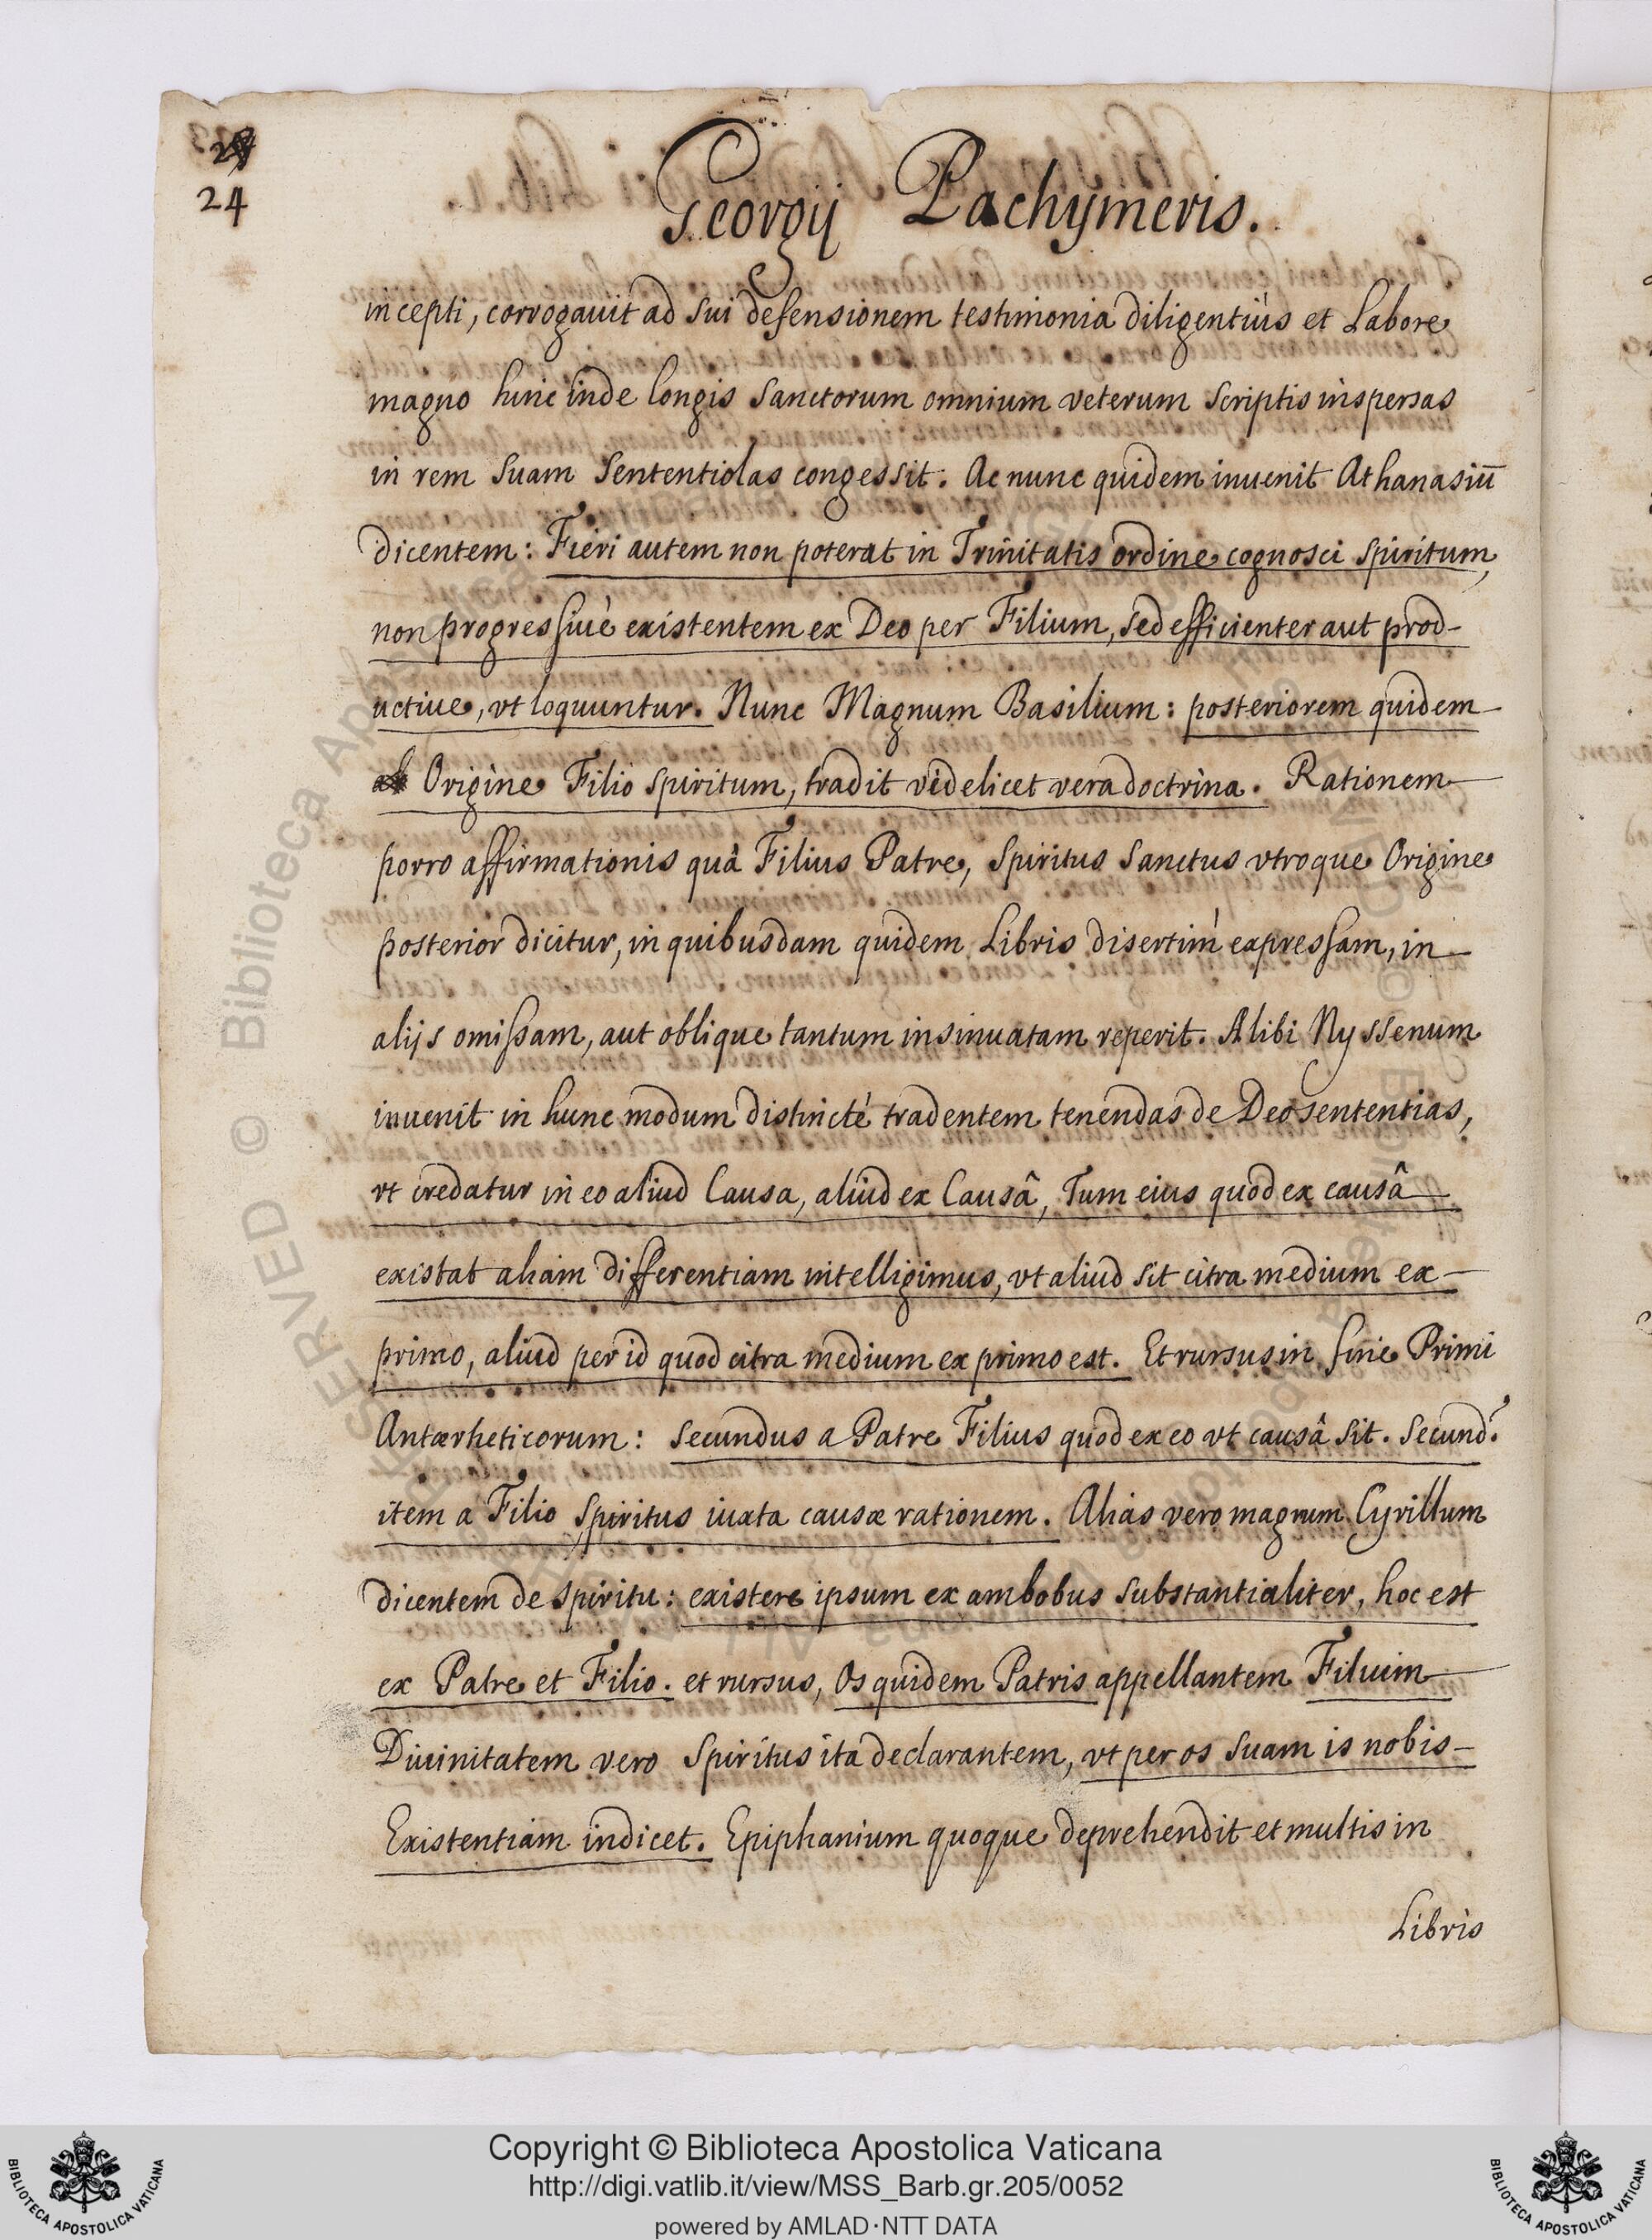 24
Georgij Pachymeris.
incepti, corrogauit ad sui defensionem testimonia diligentiùs et Labore
magno hinc inde longis Sanctorum omnium veterum Scriptis inspersas
in rem suam Sententiolas congessit. Ac nunc quidem inuenit Athanasiū
dicentem: Fieri autem non poterat in Trinitatis ordine cognosci spiritum,
non progressiuè existentem ex Deo per Filium, sed efficienter aut prod-
uctiue, vt loquuntur. Nunc Magnum Basilium: posteriorem quidem
ab Origine Filio spiritum, tradit videlicet vera doctrina. Rationem
porro affirmationis quâ Filius Patre, Spiritus Sanctus vtroque Origine
posterior dicitur, in quibusdam quidem Libris disertim expressam, in
alijs omissam, aut oblique tantum insinuatam reperit. Alibi Nyssenum
inuenit in hunc modum distinctè tradentem tenendas de Deo sententias,
vt credatur in eo aliud Causa, aliud ex Causâ, Tum eius quod ex causâ
existat aliam differentiam intelligimus, vt aliud sit citra medium ex
primo, aliud per id quod citra medium ex primo est. Et rursus in fine Primi
Antærheticorum: secundus a Patre Filius quod ex eo vt causâ sit. Secund.
item a Filio Spiritus iuxta causæ rationem. Alias vero magnum Cyrillum
dicentem de spiritu: existere ipsum ex ambobus substantialiter, hoc est
ex Patre et Filio. et rursus, Os quidem Patris appellantem Filium
Diuinitatem vero Spiritus ita declarantem, vt per os suam is nobis
Existentiam indicet. Epiphanium quoque deprehendit et multis in
Libris
© Biblioteca Apostolica Vaticana
Copyright © Biblioteca Apostolica Vaticana
http://digi.vatlib.it/view/MSS_Barb.gr.205/0052
powered by AMLAD·NTT DATA
BIBLIOTECA APOSTOLICA VATICANA
BIBLIOTECA APOSTOLICA VATICANA